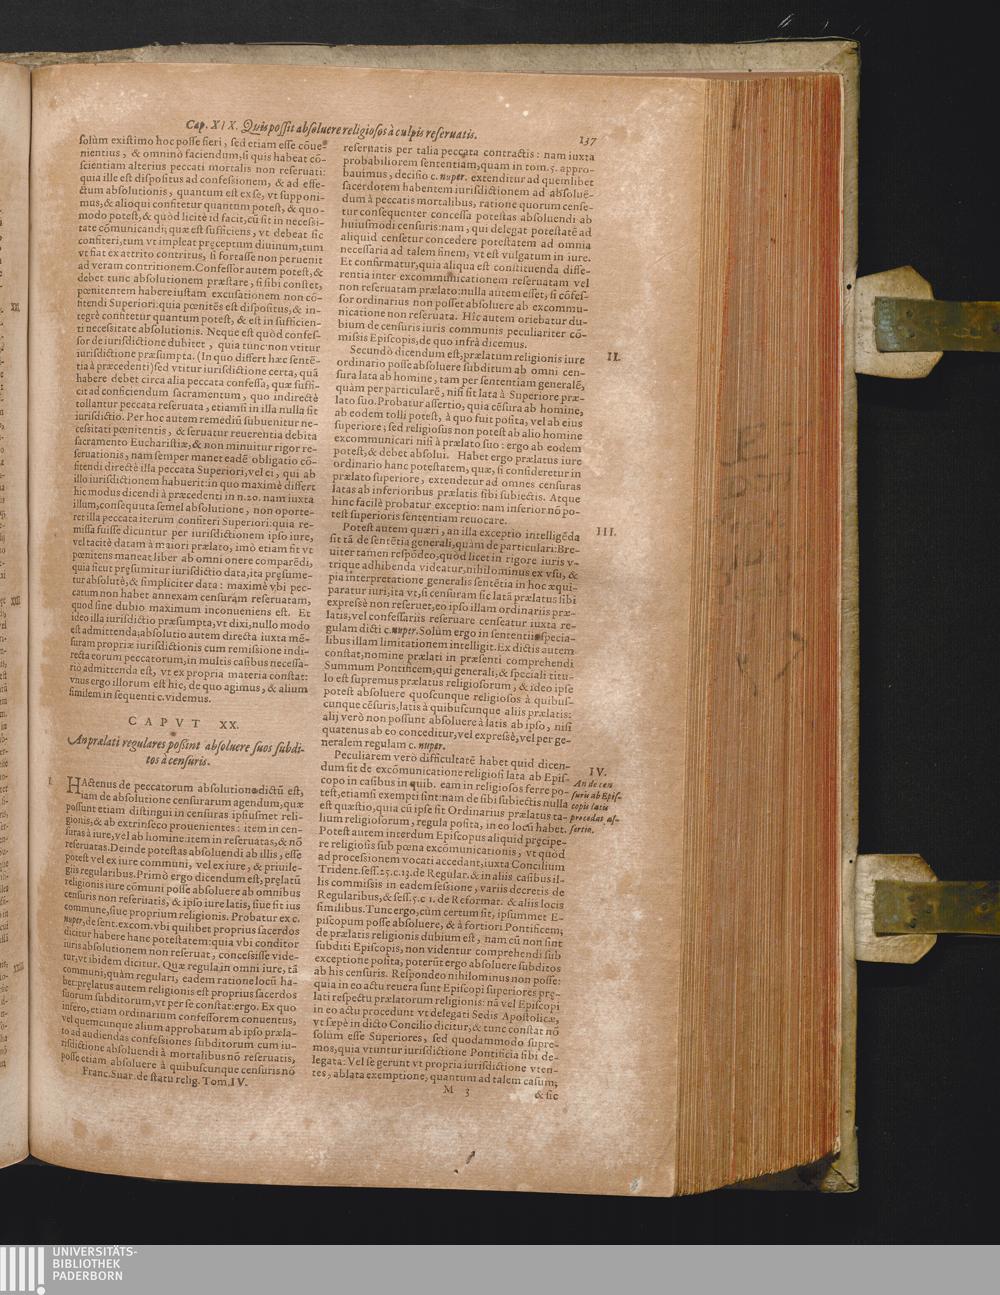 Cap. XIX. Quis possit absoluere religiosos à culpis reseruatis. 137
solùm existimo hoc posse fieri, sed etiam esse cōue-
nientius, & omninò faciendum, si quis habeat cō-
scientiam alterius peccati mortalis non reseruati:
quia ille est dispositus ad confessionem, & ad effe-
ctum absolutionis, quantum est ex se, vt supponi-
mus, & alioqui confitetur quantum potest, & quo-
modo potest, & quòd licitè id facit, cū sit in necessi-
tate cōmunicandi; quæ est sufficiens, vt debeat sic
confiteri, tum vt impleat præceptum diuinum, tum
vt fiat ex attrito contritus, si fortasse non peruenit
ad veram contritionem. Confessor autem potest, &
debet tunc absolutionem præstare, si sibi constet,
pœnitentem habere iustam excusationem non cō-
fitendi Superiori: quia pœnitēs est dispositus, & in-
tegrè confitetur quantum potest, & est in sufficien-
ti necessitate absolutionis. Neque est quòd confes-
sor de iurisdictione dubitet, quia tunc non vtitur
iurisdictione præsumpta. (In quo differt hæc sentē-
tia à præcedenti) sed vtitur iurisdictione certa, quā
habere debet circa alia peccata confessa, quæ suffi-
cit ad conficiendum sacramentum, quo indirectè
tollantur peccata reseruata, etiamsi in illa nulla sit
iurisdictio. Per hoc autem remediū subuenitur ne-
cessitati pœnitentis, & seruatur reuerentia debita
sacramento Eucharistiæ, & non minuitur rigor re-
seruationis, nam semper manet eadē obligatio cō-
fitendi directè illa peccata Superiori, vel ei, qui ab
illo iurisdictionem habuerit: in quo maximè differt
hic modus dicendi à præcedenti in n. 20. nam iuxta
illum, consequuta semel absolutione, non oporte-
ret illa peccata iterum confiteri Superiori: quia re-
missa fuisse dicuntur per iurisdictionem ipso iure,
vel tacitè datam à maiori prælato, imò etiam fit vt
pœnitens maneat liber ab omni onere comparēdi,
quia sicut præsumitur iurisdictio data, ita præsume-
tur absolutè, & simpliciter data: maximè vbi pec-
catum non habet annexam censuram reseruatam,
quod sine dubio maximum inconueniens est. Et
ideo illa iurisdictio præsumpta, vt dixi, nullo modo
est admittenda; absolutio autem directa iuxta mē-
suram propriæ iurisdictionis cum remissione indi-
recta eorum peccatorum, in multis casibus necessa-
riò admittenda est, vt ex propria materia constat:
vnus ergo illorum est hic, de quo agimus, & alium
similem in sequenti c. videmus.
CAPVT XX.
An prælati regulares possint absoluere suos subdi-
tos à censuris.
I.
HActenus de peccatorum absolutione dictū est,
iam de absolutione censurarum agendum, quæ
possunt etiam distingui in censuras ipsiusmet reli-
gionis, & ab extrinseco prouenientes: item in cen-
suras à iure, vel ab homine: item in reseruatas, & nō
reseruatas. Deinde potestas absoluendi ab illis, esse
potest vel ex iure communi, vel ex iure, & priuile-
giis regularibus. Primò ergo dicendum est, prelatū
religionis iure cōmuni posse absoluere ab omnibus
censuris non reseruatis, & ipso iure latis, siue sit ius
commune, siue proprium religionis. Probatur ex c.
nuper, de sent. excom. vbi quilibet proprius sacerdos
dicitur habere hanc potestatem: quia vbi conditor
iuris absolutionem non reseruat, concessisse vide-
tur, vt ibidem dicitur. Quæ regula, in omni iure, tā
communi, quàm regulari, eadem ratione locū ha-
bet: prelatus autem religionis est proprius sacerdos
suorum subditorum, vt per se constat: ergo. Ex quo
infero, etiam ordinarium confessorem conuentus,
vel quemcunque alium approbatum ab ipso præla-
to ad audiendas confessiones subditorum cum iu-
risdictione absoluendi à mortalibus nō reseruatis,
posse etiam absoluere à quibuscunque censuris nō
Franc. Suar. de statu relig. Tom. IV.
reseruatis per talia peccata contractis: nam iuxta
probabiliorem sententiam, quam in tom. 5. appro-
bauimus, decisio c. nuper. extenditur ad quemlibet
sacerdotem habentem iurisdictionem ad absoluē-
dum à peccatis mortalibus, ratione quorum cense-
tur consequenter concessa potestas absoluendi ab
huiusmodi censuris: nam, qui delegat potestatē ad
aliquid censetur concedere potestatem ad omnia
necessaria ad talem finem, vt est vulgatum in iure.
Et confirmatur, quia aliqua est constituenda diffe-
rentia inter excommunicationem reseruatam vel
non reseruatam prælato: nulla autem esset, si cōfes-
sor ordinarius non posset absoluere ab excommu-
nicatione non reseruata. Hic autem oriebatur du-
bium de censuris iuris communis peculiariter cō-
missis Episcopis, de quo infrà dicemus.
II.
Secundò dicendum est, prælatum religionis iure
ordinario posse absoluere subditum ab omni cen-
sura lata ab homine, tam per sententiam generalē,
quàm per particularē, nisi sit lata à Superiore præ-
lato suo. Probatur assertio, quia cēsura ab homine,
ab eodem tolli potest, à quo fuit posita, vel ab eius
superiore; sed religiosus non potest ab alio homine
excommunicari nisi à prælato suo: ergo ab eodem
potest, & debet absolui. Habet ergo prælatus iure
ordinario hanc potestatem, quæ, si consideretur in
prælato superiore, extendetur ad omnes censuras
latas ab inferioribus prælatis sibi subiectis. Atque
hinc facilè probatur exceptio: nam inferior nō po-
test superioris sententiam reuocare.
III.
Potest autem quæri, an illa exceptio intelligēda
sit tā de sentētia generali, quàm de particulari: Bre-
uiter tamen respōdeo, quòd licet in rigore iuris v-
trique adhibenda videatur, nihilominus ex vsu, &
pia interpretatione generalis sentētia in hoc æqui-
paratur iuri, ita vt, si censuram sic latā prælatus sibi
expressè non reseruet, eo ipso illam ordinariis præ-
latis, vel confessariis reseruare censeatur iuxta re-
gulam dicti c. nuper. Solùm ergo in sententiis specia-
libus illam limitationem intelligit. Ex dictis autem
constat, nomine prælati in præsenti comprehendi
Summum Pontificem, qui generali, & speciali titu-
lo est supremus prælatus religiosorum, & ideo ipse
potest absoluere quoscunque religiosos à quibus-
cunque cēsuris, latis à quibuscunque aliis prælatis:
alij verò non possunt absoluere à latis ab ipso, nisi
quatenus ab eo conceditur, vel expressè, vel per ge-
neralem regulam c. nuper.
IV.
An de cen
suris ab Epis-
copis latis
procedat as-
sertio.
Peculiarem verò difficultatē habet quid dicen-
dum sit de excōmunicatione religiosi lata ab Epis-
copo in casibus in quib. eam in religiosos ferre po-
test, etiamsi exempti sint: nam de sibi subiectis nulla
est quæstio, quia cū ipse sit Ordinarius prælatus ta-
lium religiosorum, regula posita, in eo locū habet.
Potest autem interdum Episcopus aliquid præcipe-
re religiosis sub pœna excōmunicationis, vt quòd
ad processionem vocati accedant, iuxta Concilium
Trident. sess. 25. c. 13. de Regular. & in aliis casibus il-
lis commissis in eadem sessione, variis decretis de
Regularibus, & sess. 5. c 1. de Reformat. & aliis locis
similibus. Tunc ergo, cùm certum sit, ipsummet E-
piscopum posse absoluere, & à fortiori Pontificem;
de prælatis religionis dubium est, nam cū non sint
subditi Episcopis, non videntur comprehendi sub
exceptione posita, poterūt ergo absoluere subditos
ab his censuris. Respondeo nihilominus non posse:
quia in eo actu reuera sunt Episcopi superiores præ-
lati respectu prælatorum religionis: nā vel Episcopi
in eo actu procedunt vt delegati Sedis Apostolicæ,
vt sæpè in dicto Concilio dicitur, & tunc constat nō
solùm esse Superiores, sed quodammodo supre-
mos, quia vtuntur iurisdictione Pontificia sibi de-
legata: Vel se gerunt vt propria iurisdictione vten-
tes, ablata exemptione, quantum ad talem casum;
M 3 & sic
XII.
XIII
XXIII
UNIVERSITÄTS-
BIBLIOTHEK
PADERBORN